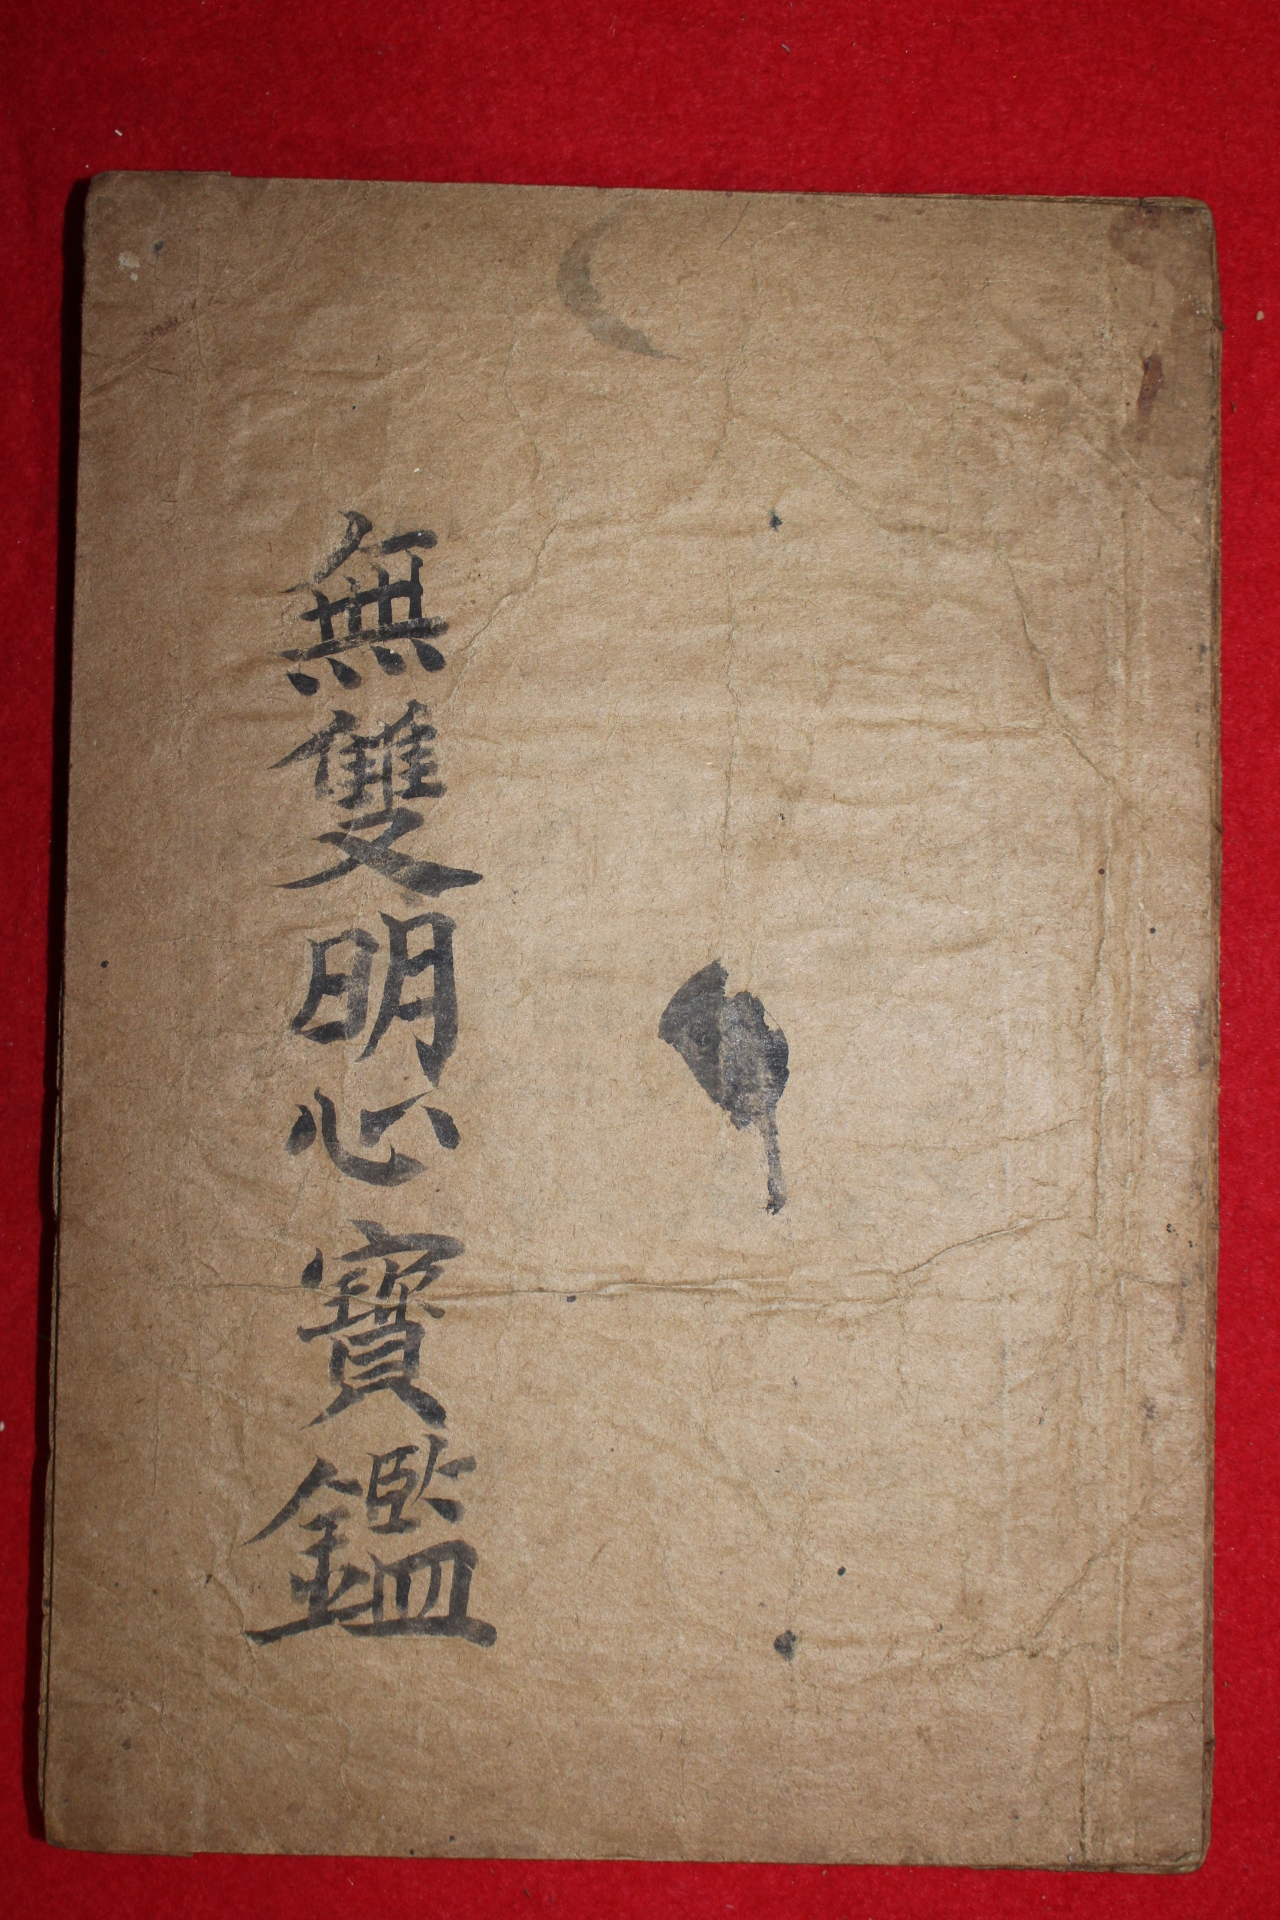 無雙明心寶鑑